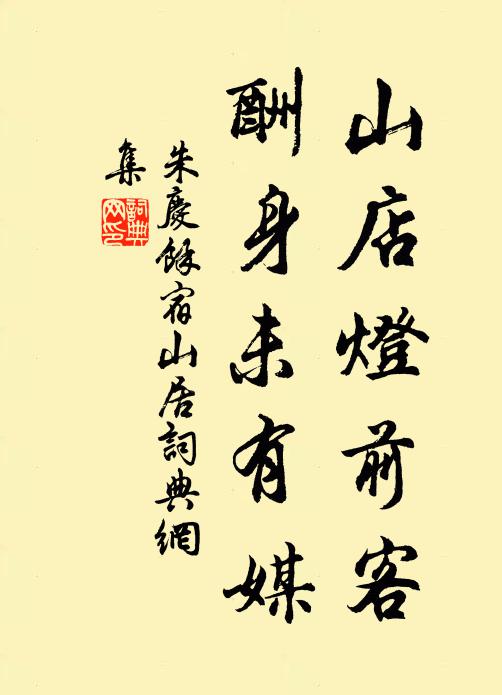 山店燈前客
酬身未有媒
朱慶餘宿山居詞典網
集
詞典
网印